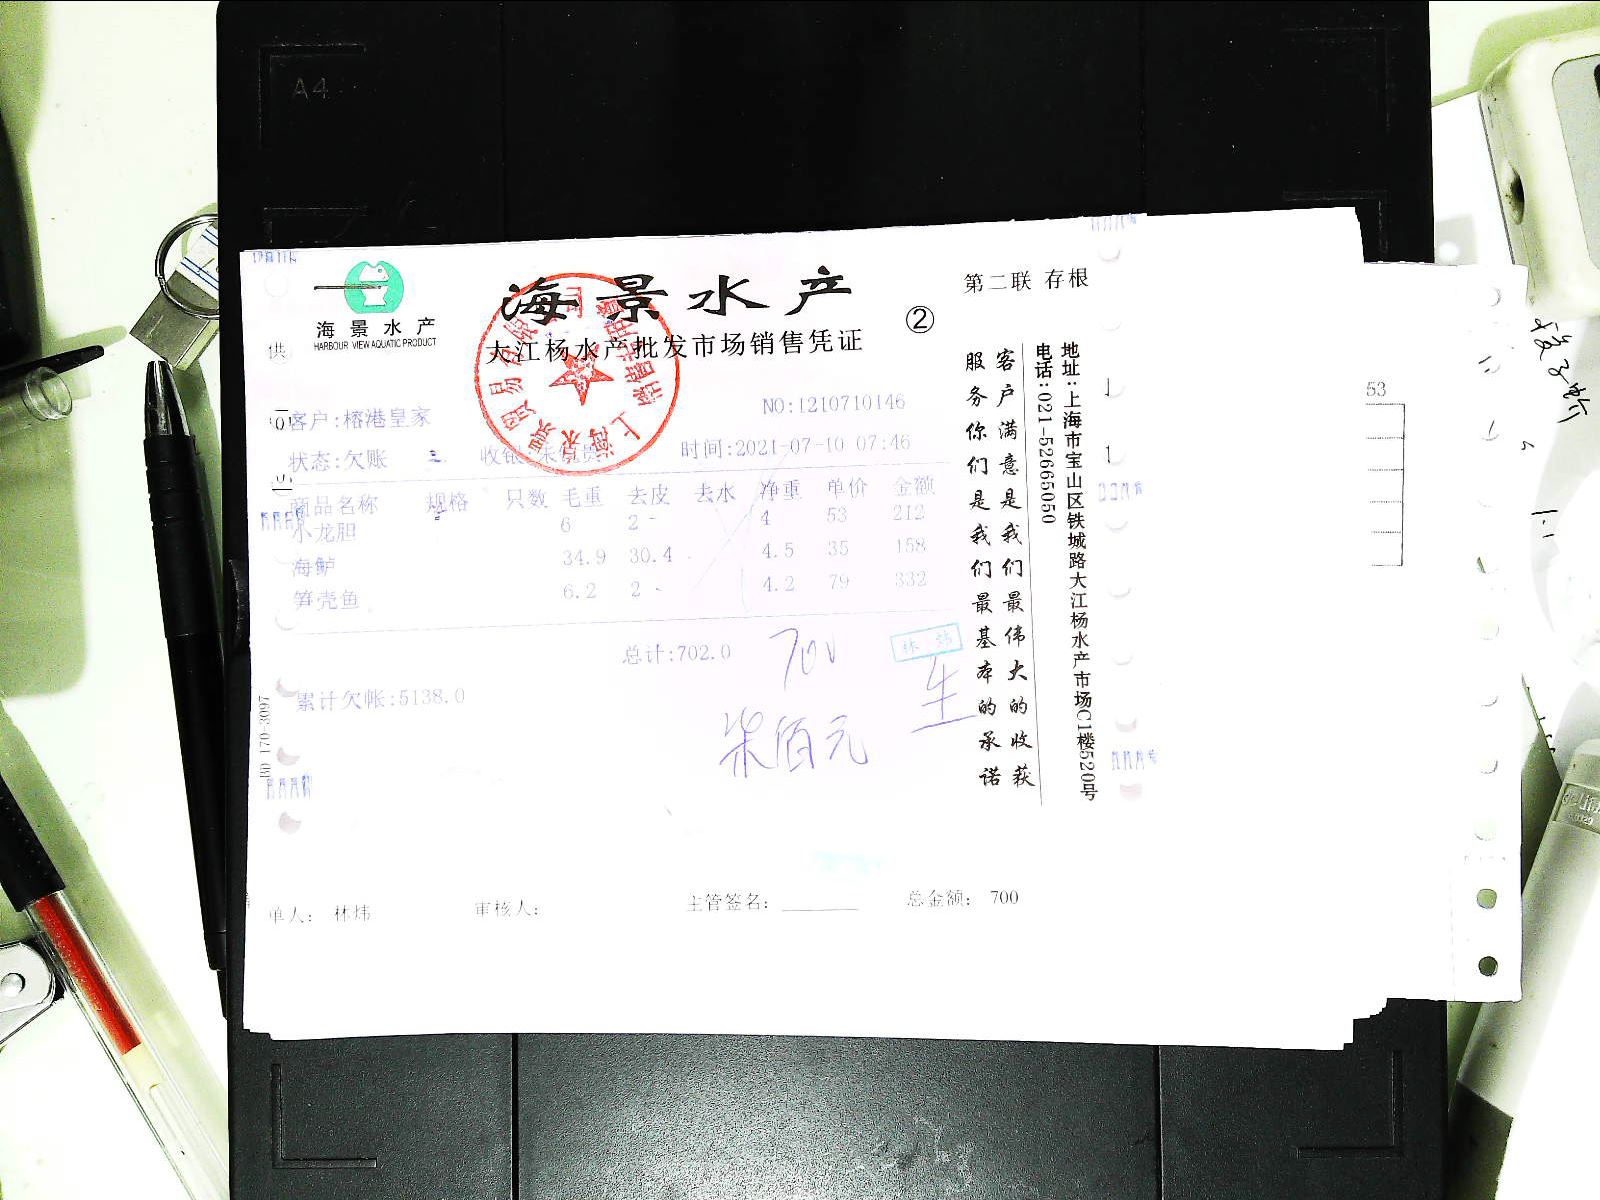 A4
海景水产
HARBOUR VIEW AQUATIC PRODUCT
海景水产
大江杨水产批发市场销售凭证
②
第二联 存根
供
客户:榕港皇家
NO:1210710146
状态:欠账
收银:
时间:2021-07-10 07:46
商品名称 规格 只数 毛重 去皮 去水 净重 单价 金额
小龙胆 6 2 4 53 212
海鲈 34.9 30.4 4.5 35 158
笋壳鱼 6.2 2 4.2 79 332
总计:702.0
700
累计欠帐:5138.0
朱佰元
客户满意是我们最伟大的收获
服务你们是我们最基本的承诺
地址:上海市宝山区铁城路大江杨水产市场C1楼520号
电话:021-52665050
53
170-3097
单人: 林炜
审核人:
主管签名:
总金额: 700
deli